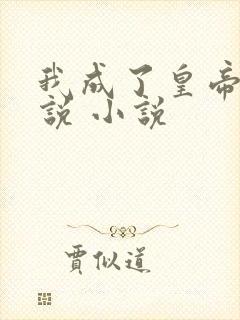 我成了皇帝
說 小說
賈似道